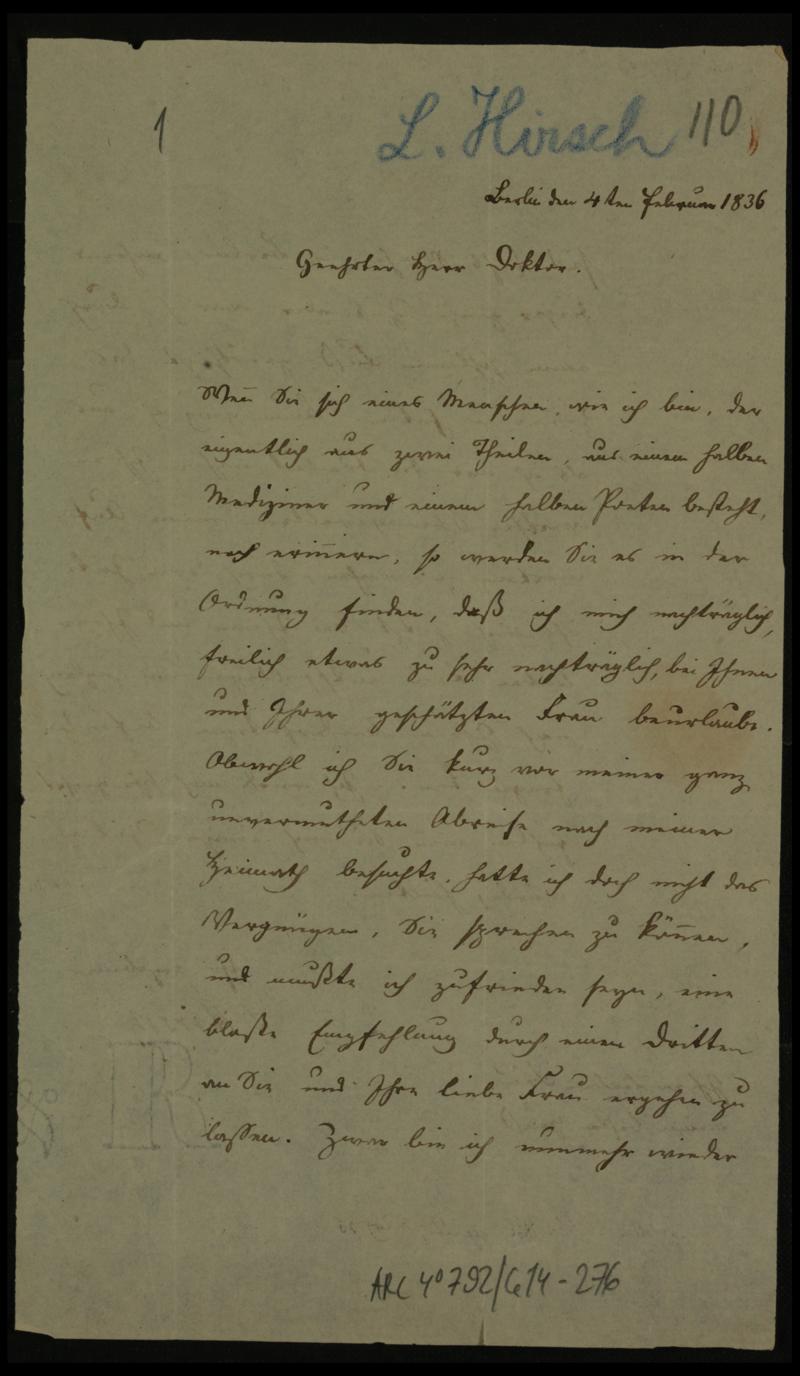 1
L. Hirsch 110
Berlin den 4ten Februar 1836
Geehrter Herr Doktor.
Wen̅ Sie sich eines Menschen, wie ich bin, der
eigentlich aus zwei Theilen, aus einem halben
Mediziner und einem halben Poeten besteht,
noch erin̅ern, so werden Sie es in der
Ordnung finden, daß ich mich nachträglich,
freilich etwas zu sehr nachträglich, bei Ihnen
und Ihrer geschätzten Frau beurlaube.
Obwohl ich Sie kurz vor meiner ganz
unvermutheten Abreise nach meiner
Heimath besuchte, hatte ich doch nicht das
Vergnügen, Sie sprechen zu kön̅en,
und mußte ich zufrieden seyn, eine
bloße Empfehlung durch einen Dritten
an Sie und Ihre liebe Frau ergehen zu
lassen. Zwar bin ich nunmehr wieder
ARC 4° 792/G14-276